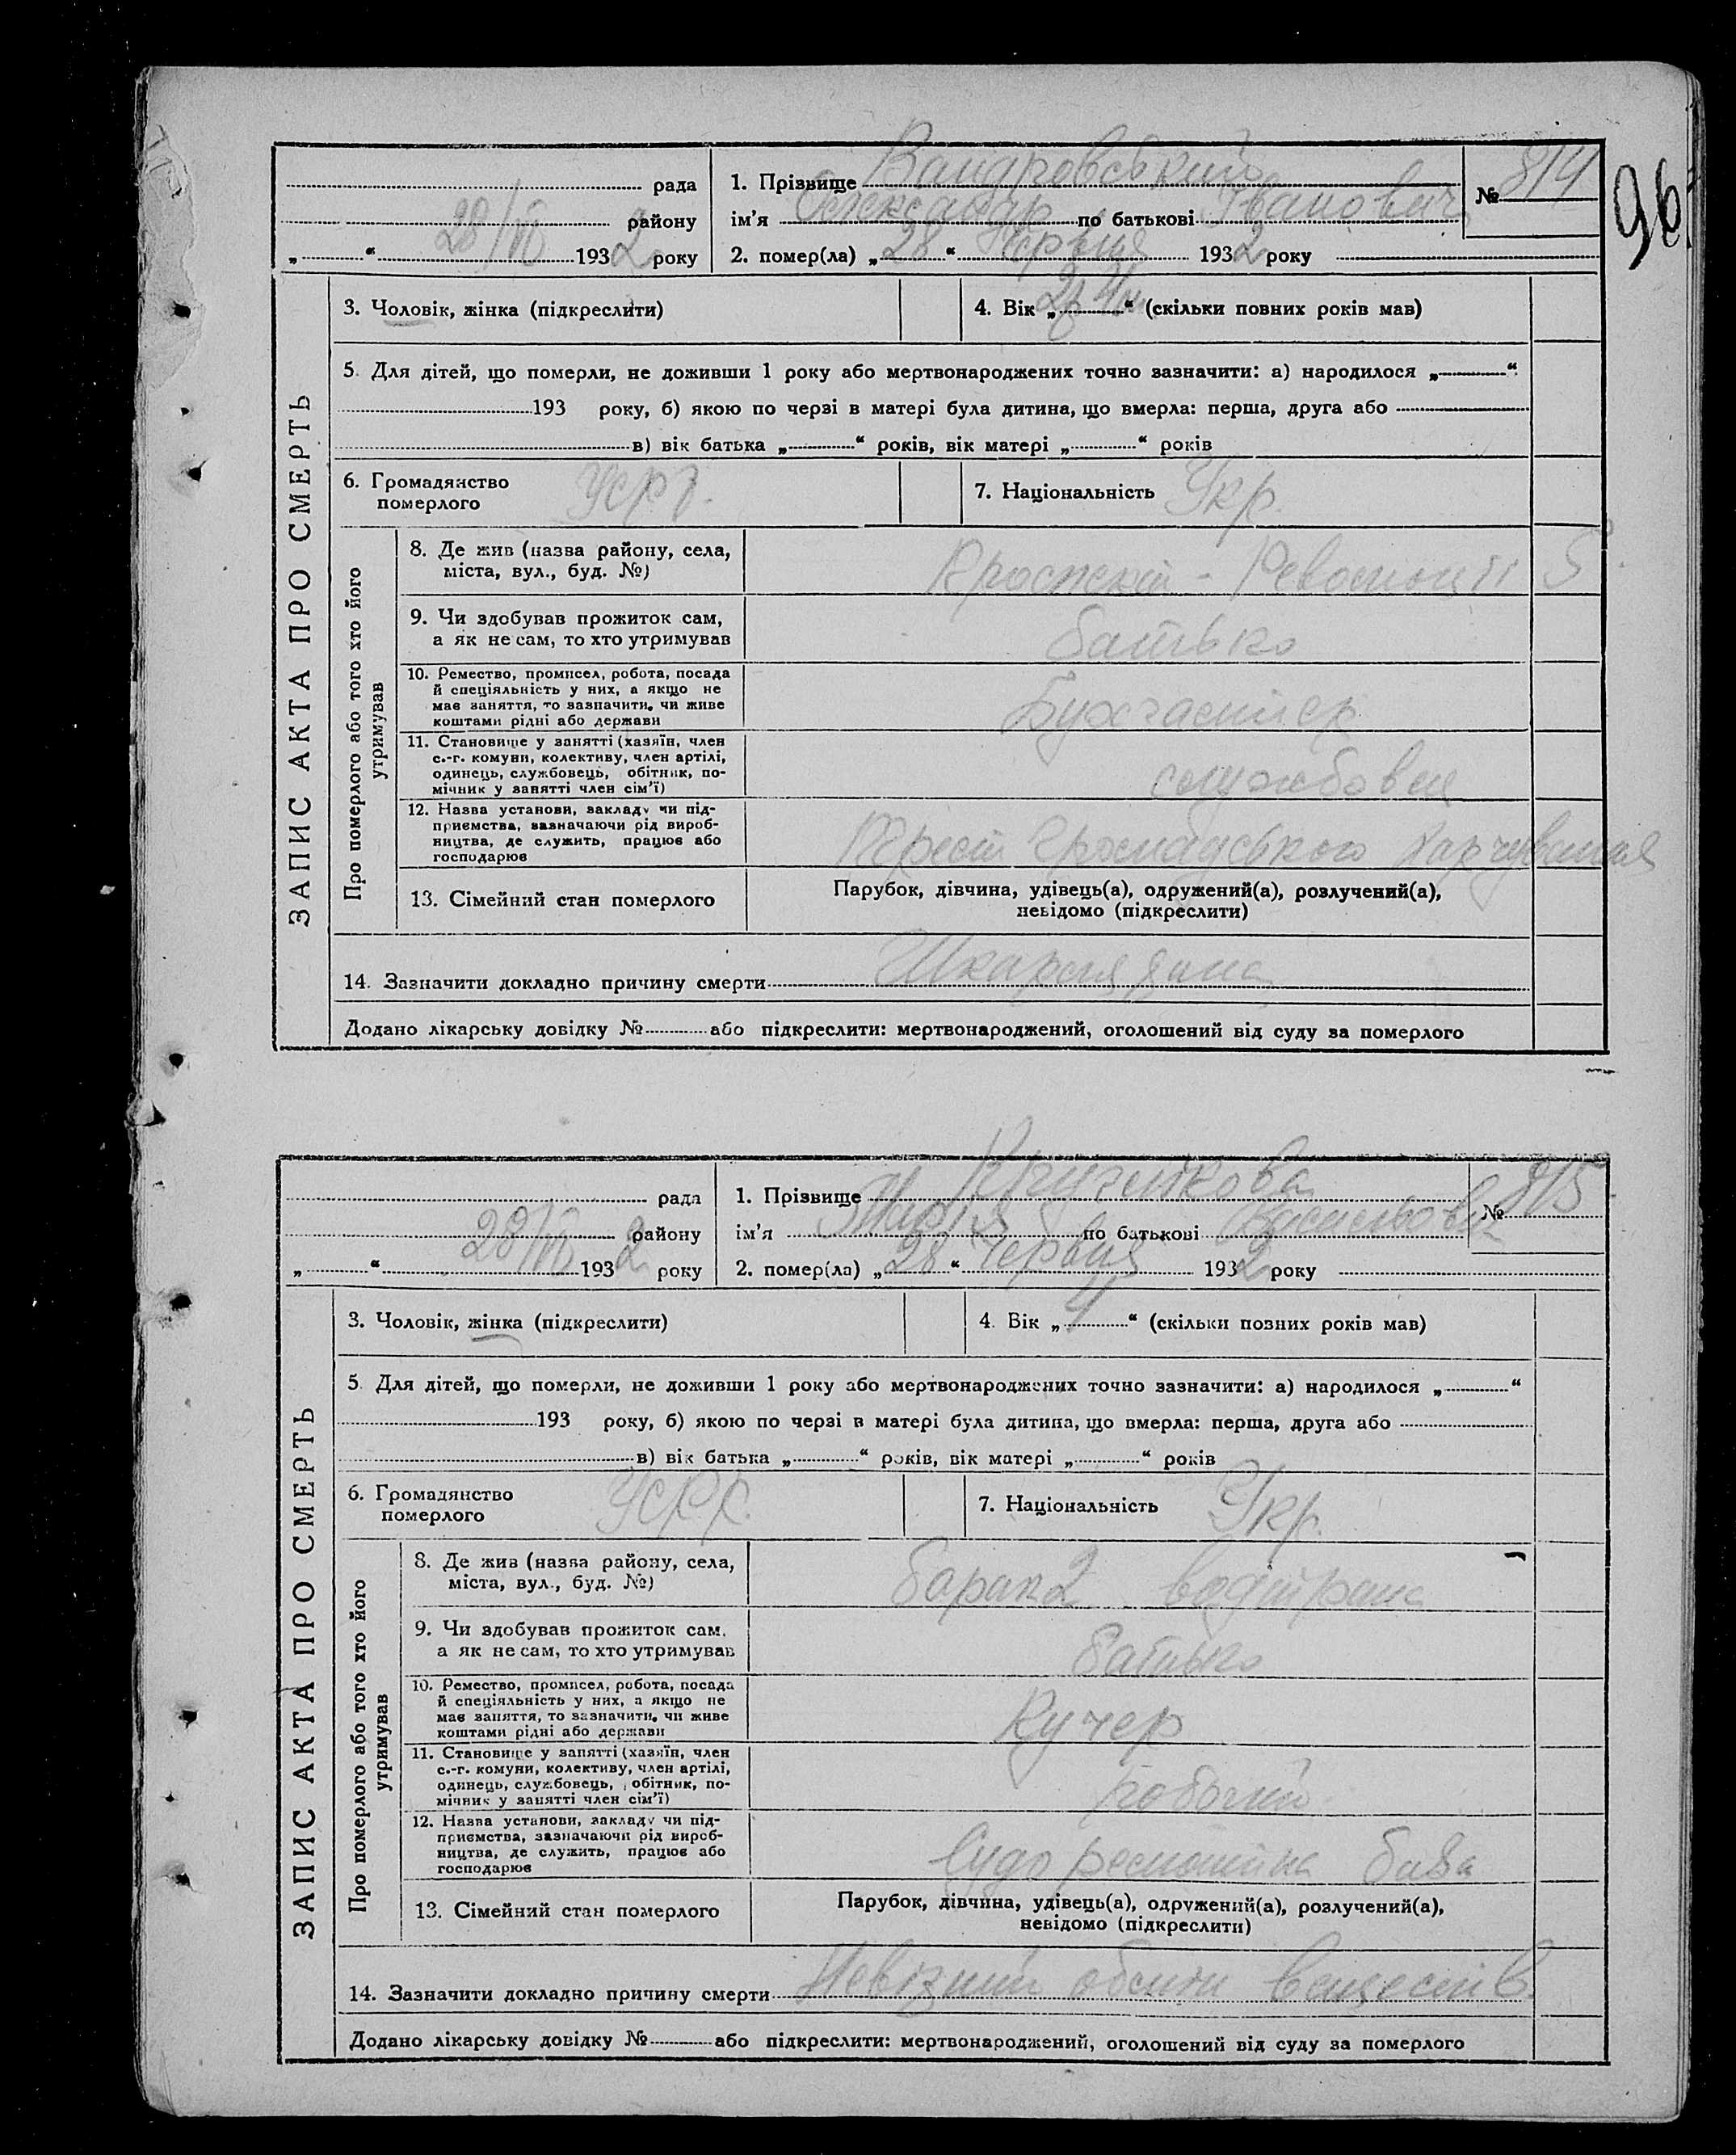 96
рада
району
28/VI
„ “ 1932 року
1. Прізвище Вандровський
ім’я Олександр по батькові Іванович
2. помер(ла) „28“ Червня 1932 року
№ 814
ЗАПИС АКТА ПРО СМЕРТЬ
3. Чоловік, жінка (підкреслити)
4. Вік „ “ (скільки повних років мав)
5. Для дітей, що померли, не доживши 1 року або мертвонароджених точно зазначити: а) народилося „ “
193 року, б) якою по черзі в матері була дитина, що вмерла: перша, друга або
в) вік батька „ “ років, вік матері „ “ років
6. Громадянство
померлого
УСРР.
7. Національність Укр.
Про померлого або того хто його
утримував
8. Де жив (назва району, села,
міста, вул., буд. №)
Проспект - Революції 5
9. Чи здобував прожиток сам,
а як не сам, то хто утримував
батько
10. Ремество, промисел, робота, посада
й спеціяльність у них, а якщо не
має заняття, то зазначити, чи живе
коштами рідні або держави
Бухгалтер
11. Становище у занятті (хазяїн, член
с.-г. комуни, колективу, член артілі,
одинець, службовець, обітник, по-
мічник у занятті член сім’ї)
службовец
12. Назва установи, закладу чи під-
приємства, зазначаючи рід вироб-
ництва, де служить, працює або
господарює
Трест Громадського Харчування
13. Сімейний стан померлого
Парубок, дівчина, удівець(а), одружений(а), розлучений(а),
невідомо (підкреслити)
14. Зазначити докладно причину смерти Шкарлядина
Додано лікарську довідку № або підкреслити: мертвонароджений, оголошений від суду за померлого
рада
району
28/VI
„ “ 1932 року
1. Прізвище Кругликова
ім’я Марія по батькові Васильовн
2. помер(ла) „28“ Червня 1932 року
№ 815
ЗАПИС АКТА ПРО СМЕРТЬ
3. Чоловік, жінка (підкреслити)
4. Вік „4“ (скільки позних років мав)
5. Для дітей, що померли, не доживши 1 року або мертвонароджених точно зазначити: а) народилося „ “
193 року, б) якою по черзі в матері була дитина, що вмерла: перша, друга або
в) вік батька „ “ років, вік матері „ “ років
6. Громадянство
померлого
УСРР.
7. Національність Укр.
Про померлого або того хто його
утримував
8. Де жив (назва району, села,
міста, вул., буд. №)
барак 2 водтранс
9. Чи здобував прожиток сам,
а як не сам, то хто утримував
батько
10. Ремество, промисел, робота, посада
й спеціяльність у них, а якщо не
має заняття, то зазначити, чи живе
коштами рідні або держави
Кучер
11. Становище у занятті (хазяїн, член
с.-г. комуни, колективу, член артілі,
одинець, службовець, обітник, по-
мічник у занятті член сім’ї)
робочий
12. Назва установи, закладу чи під-
приємства, зазначаючи рід вироб-
ництва, де служить, працює або
господарює
Судо ремонтна база
13. Сімейний стан померлого
Парубок, дівчина, удівець(а), одружений(а), розлучений(а),
невідомо (підкреслити)
14. Зазначити докладно причину смерти обмін веществ.
Додано лікарську довідку № або підкреслити: мертвонароджений, оголошений від суду за померлого